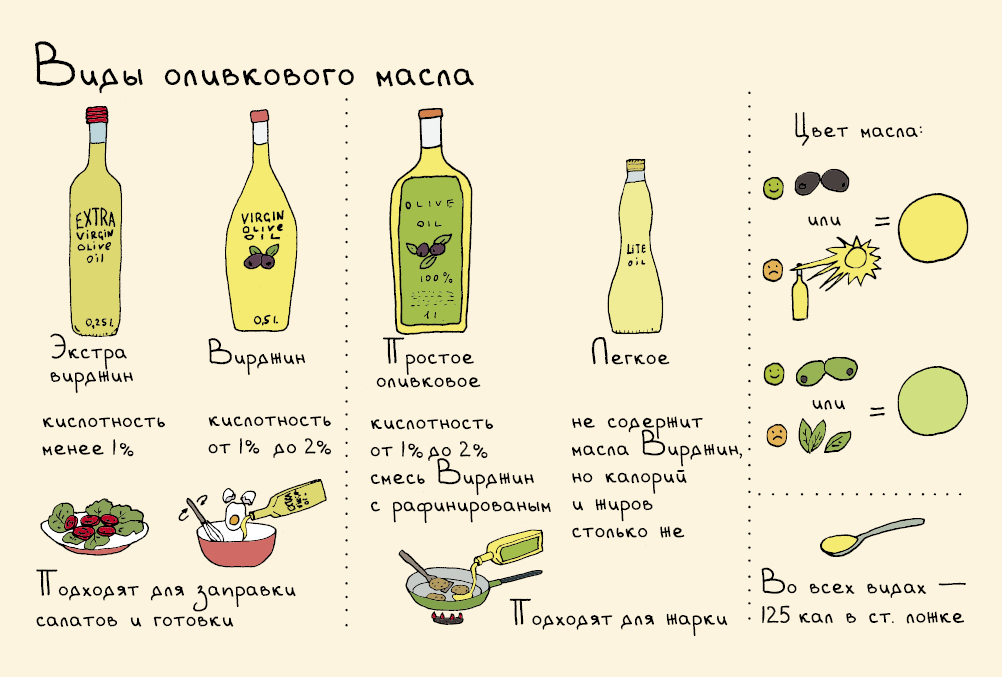 Виды оливкового масла
EXTRA
VIRGIN
OLIVE
OIL
0,25 l.
Экстра
вирджин
кислотность
менее 1%
VIRGIN
OLIVE
OIL
0,5 l.
Вирджин
кислотность
от 1% до 2%
EXTRA
VIRGIN
OIL
Подходят для заправки
салатов и готовки
OLIVE
OIL
100%
1 l.
Простое
оливковое
кислотность
от 1% до 2%
смесь Вирджин
с рафинированым
LITE
OIL
Легкое
не содержит
масла Вирджин,
но калорий
и жиров
столько же
Подходят для жарки
Цвет масла:
или =
или =
Во всех видах —
125 кал в ст. ложке